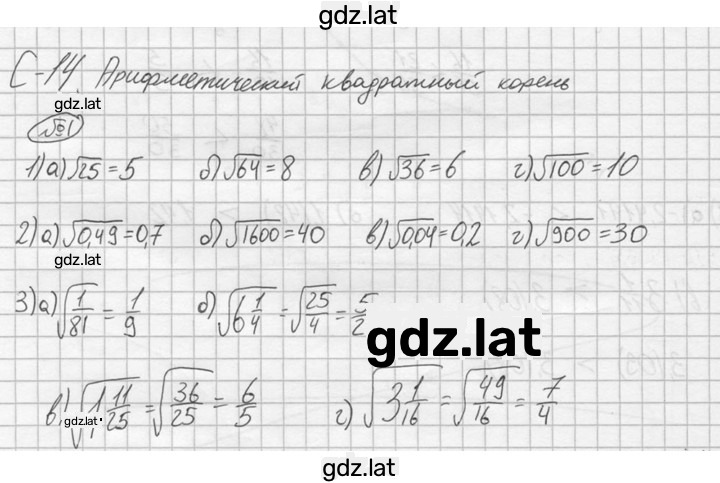 gdz.lat
С-14. Арифметический квадратный корень
gdz.lat
№1
1) а) √25 = 5 б) √64 = 8 в) √36 = 6 г) √100 = 10
2) а) √0,49 = 0,7 б) √1600 = 40 в) √0,04 = 0,2 г) √900 = 30
gdz.lat
3) а) √(1/81) = 1/9 б) √(6 1/4) = √(25/4) = 5/2
gdz.lat
в) √(1 11/25) = √(36/25) = 6/5 г) √(3 1/16) = √(49/16) = 7/4
gdz.lat
gdz.lat